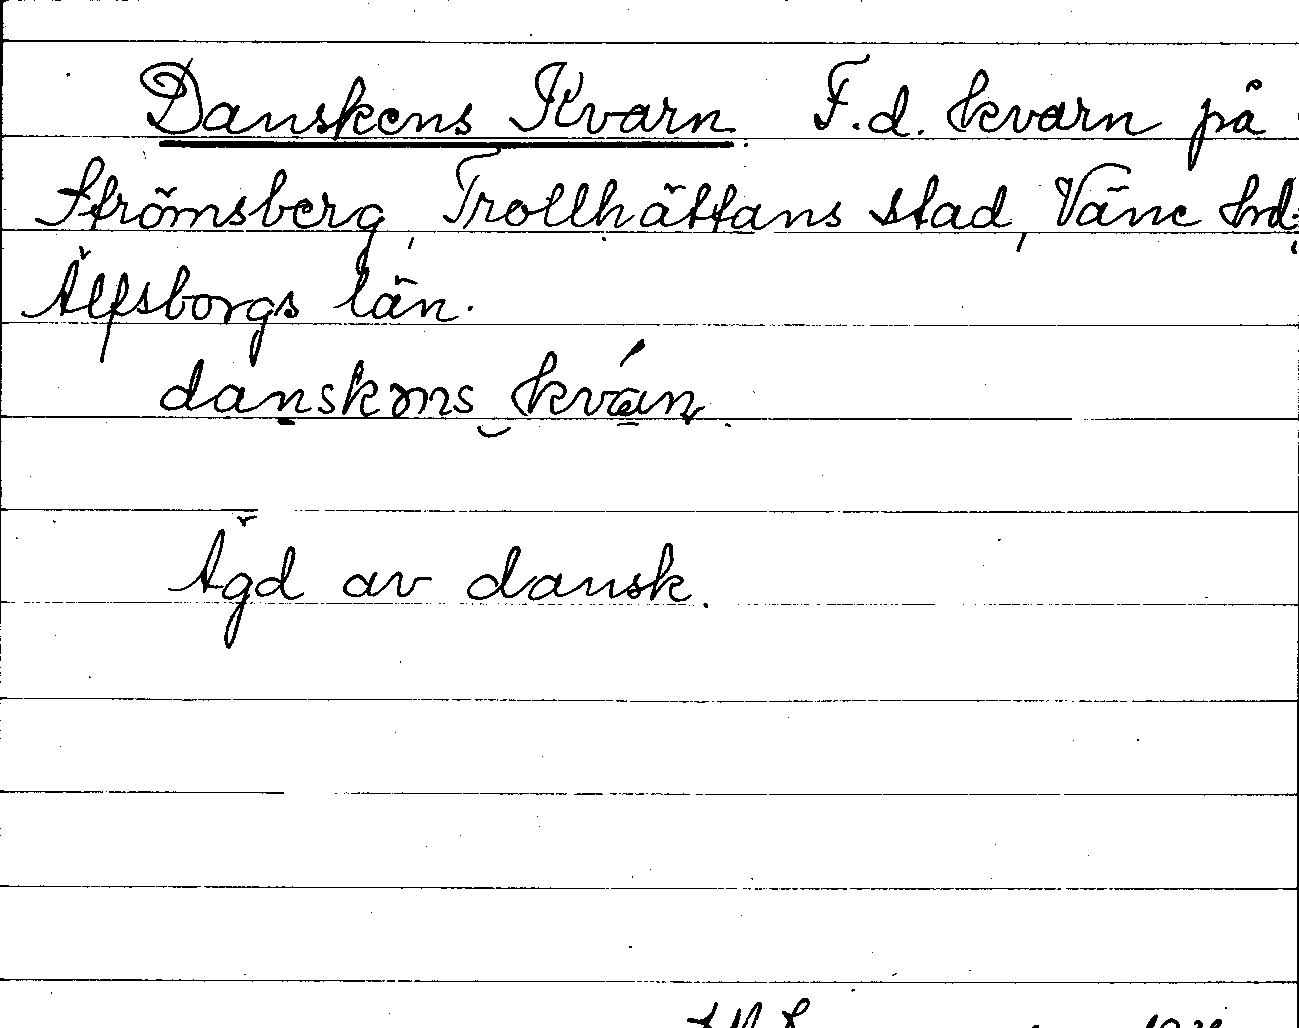 Danskens Kvarn. F.d. kvarn på
Strömsberg, Trollhättans stad, Väne hd,
Älfsborgs län.
danskəns kván.
Ägd av dansk.